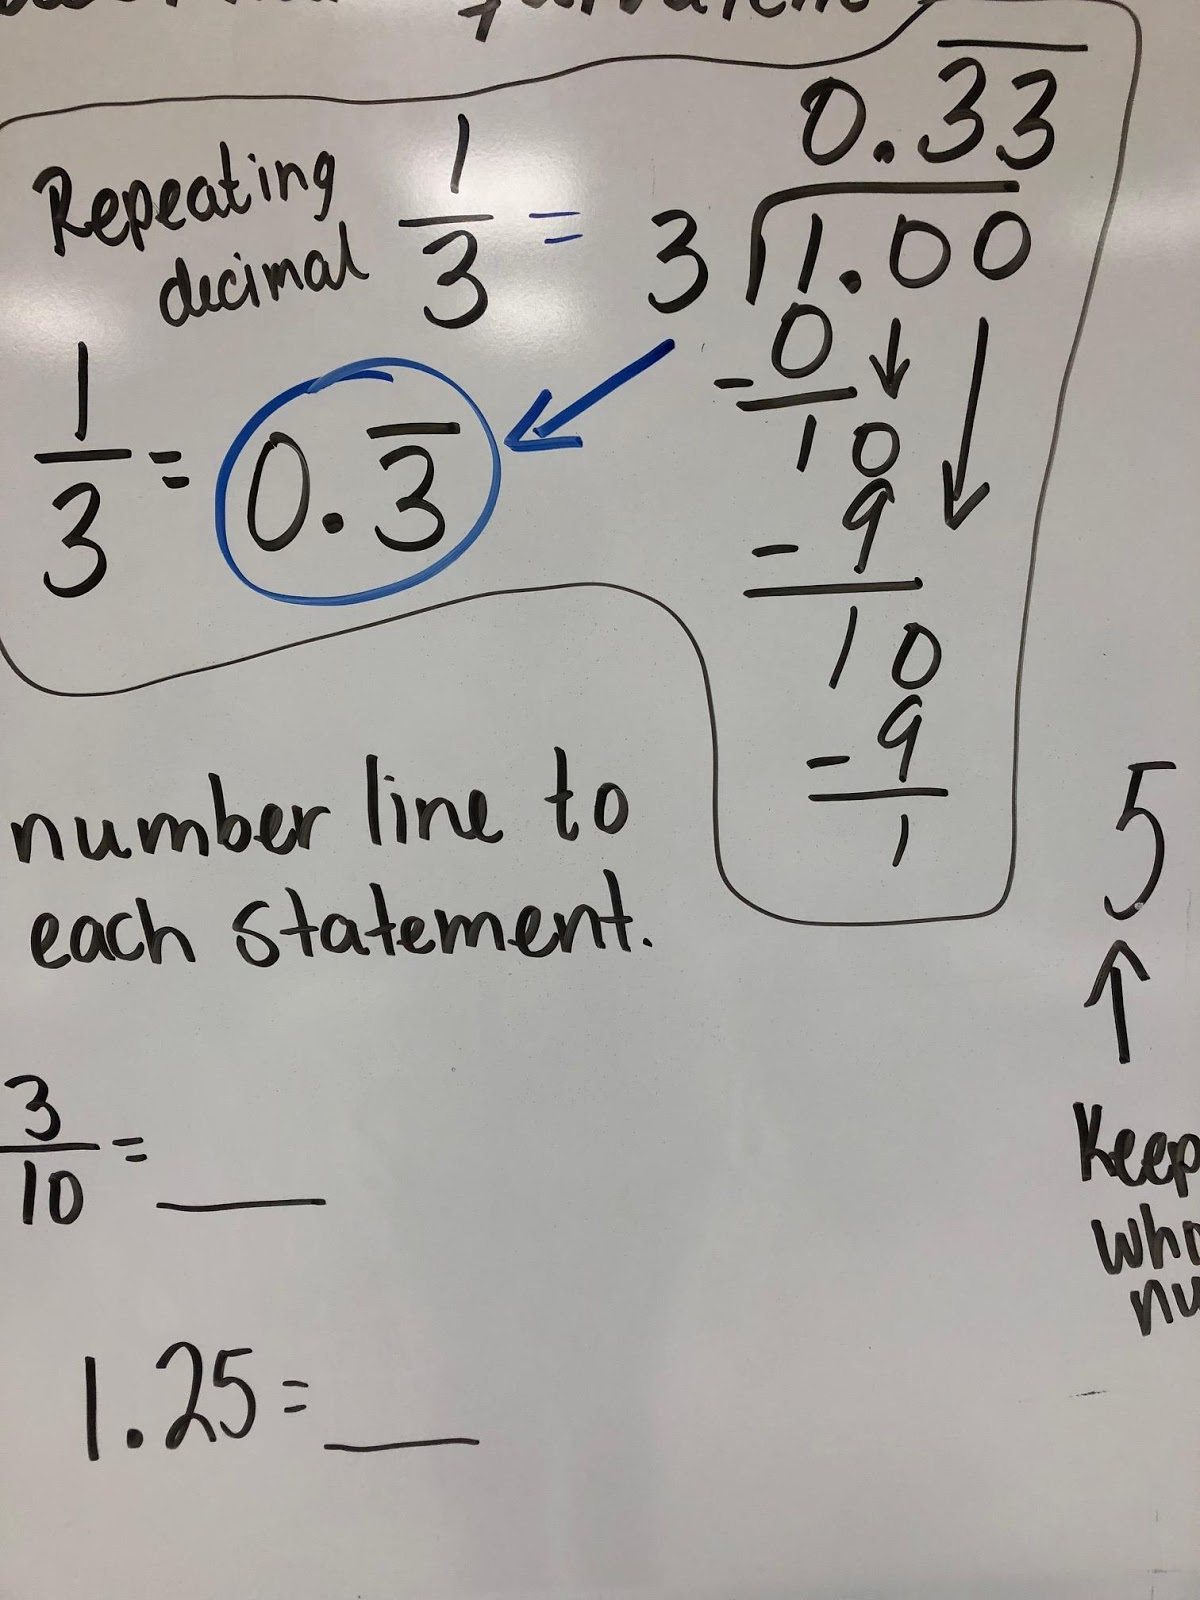 Repeating
decimal
1/3 =
0.3̅3̅
3 ⟌1.00
- 0
10
- 9
10
- 9
1
1/3 = 0.3̅
number line to
each statement.
3/10 = ___
1.25 = ___
5
↑
Keep